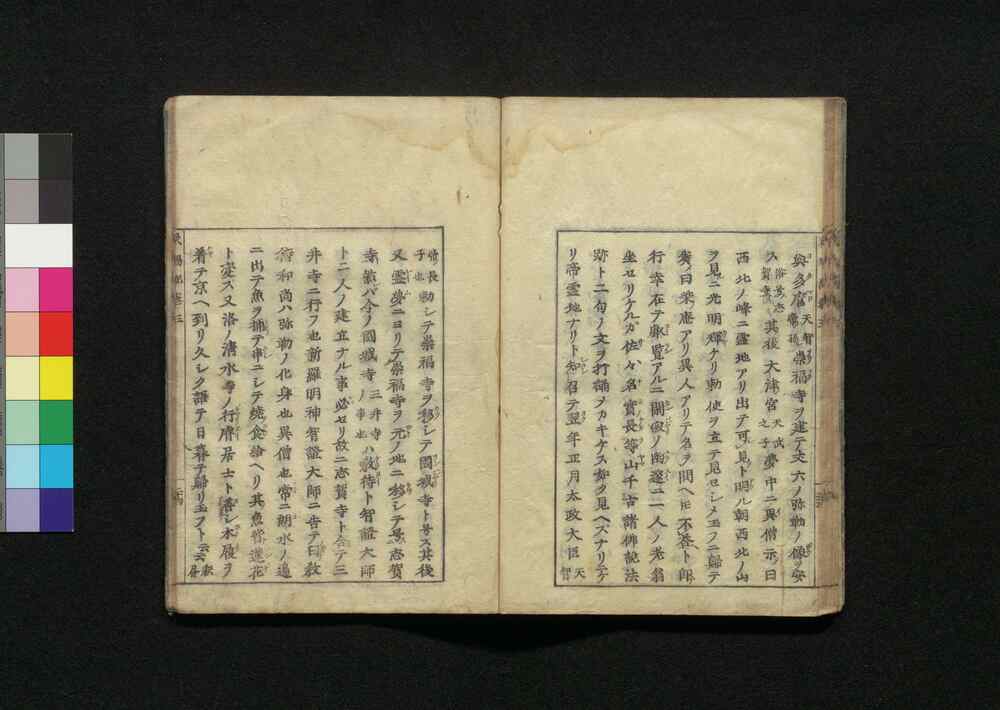 與多麿 天智帝ノ孫 崇福寺ヲ建テ丈六ノ弥勒ノ像ヲ安
ス 其後大津宮 天武之子 夢中ニ異僧示シ曰
西北ノ峰ニ霊地アリ出テ可見ト明ル朝西北ノ山
ヲ見ニ光明輝ケリ勅使ヲ立テ見セシメ玉フニ歸テ
奏ノ曰 アリ異人アリテ名ヲ問ヘ𪜈不答ト即
行幸在テ叡覧アルニ閑寂ノ幽邃ニ一人ノ老翁
坐セリケルカ佐々名實長等山千古諸佛説法
跡ト二句ノ文ヲ打誦ヲカキケス如ク見ヘスナリニケ
リ帝霊地ナリト知召テ翌年正月太政大臣 天智
子也 勅シテ崇福寺ヲ移シテ園城寺ト号ス其後
又霊夢ニヨリテ崇福寺ヲ元ノ地ニ移シテ号志賀
寺 今ノ園城寺 三井寺ノ事也 ハ教待ト智證大師
ト二人ノ建立ナル事必セリ故ニ志賀寺ト 三
井寺ニ行フ也新羅明神智證大師ニ告テ曰教
待和尚ハ弥勒ノ化身也異僧也常ニ湖水ノ邉
ニ出テ魚ヲ捕テ串ニシテ焼食給ヘリ其魚皆蓮花
ト変ス又洛ノ清水寺ノ行膺居士ト 木履ヲ
着テ京ヘ到リ久シク語テ日暮テ歸リ玉フト云云